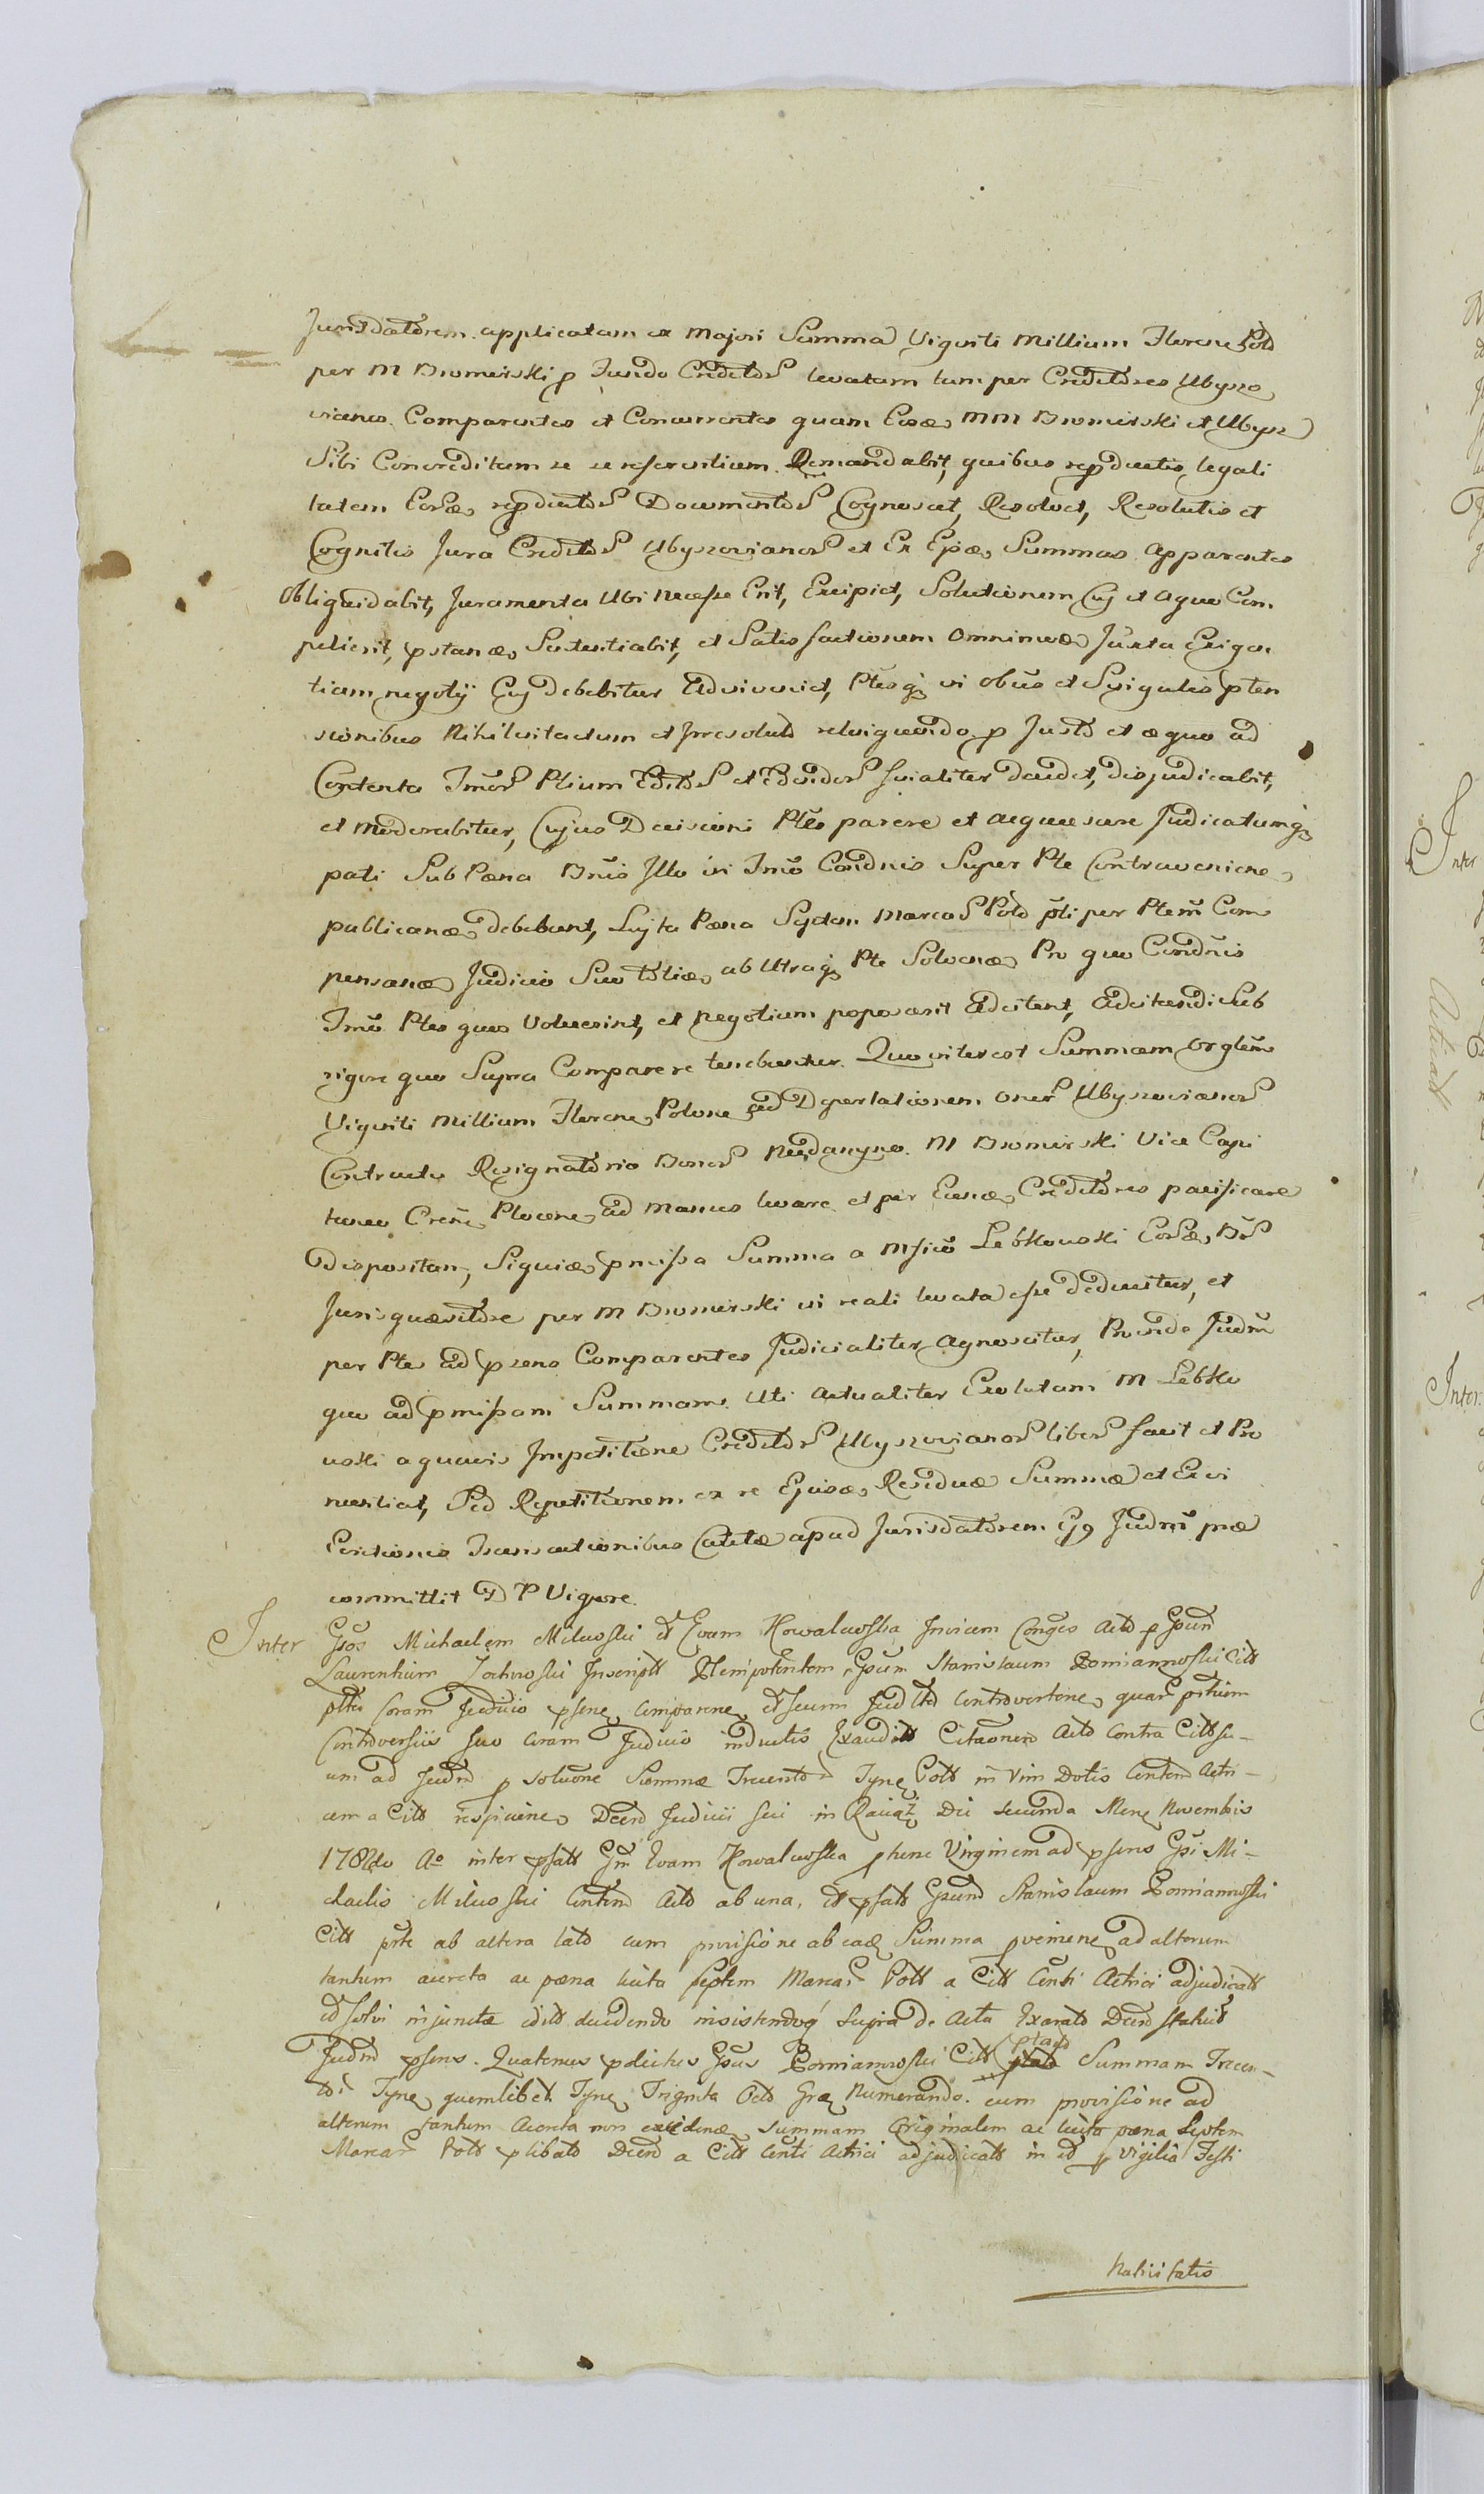 Jurisdatorem applicatam ex Majori Summa Viginti Millium Floren Pold
per M Bromirski p Fundo Creditor levatam tum per Creditores Ubyszo
vianos Comparentes et Concurrentes quam Eosd MM Bromirski et Ubysz
Sibi Concreditam se se referentium Demandabit, quibus repductis legali
tatem Eord repductor Documentor Cognoscet, Resolvet, Resolutis et
Cognitis Jura Creditor Ubyszovianor et Ex Ejsd Summas Apparentes
obliquidabit, Juramenta Ubi Necesse Erit, Excipiet, Solutionem Cuj et a quo Com
petierit, pstand Sententiabit, et Satisfactionem omnimod Juxta Exigen
tiam negotij Cuj debebitur Adinveniet, Ptesq in obus et Singulis pten
sionibus Nihil intactum et Irresolutd relinquendo p Justo et aequo ad
Contenta Tmor Ptium Editor et Edendor finaliter decidet, disjudicabit,
et Moderabitur, Cujus Decisioni Ptes parere et acquiescere Judicatumq
pati Sub Poena Bnis Illo in Tmo Condnis Super Pte Contravenien
publicand debebunt, Lujta Poena Septem Marcar Pold pti per Ptem Com
pensand Judicio Suo totid ab Utraq Pte Solvend Pro quo Condnis
Tmo Ptes quos Voluerint, et Negotium poposcerit Adcitent, Adcitandi Sub
rigore quo Supra Comparere tenebuntur. Quo interest Summam Orglem
Viginti Millium Floren Polon ad Deportationem oner Ubyszovianor
Contractu Resignatorio Bonor M Bromirski Vice Capi
taneo Plocen ad Manus levare et per Eund Creditores pacificare
dispositam, Siquid pmissa Summa a Mfico Lebkowski Eord Bor
Juris quaesitore per M Bromirski in reali levata esse deducitur, et
per Ptes ad psens Comparentes Judicialiter Agnoscitur, Proinde Judm
quo ad pmissam Summam Uti Actualiter Exolutam M Lebko
wski a quavis Impetitione Creditor Ubyszovianor liber facit et Pro
nuntiat, Sed Repetitionem ex re Ejusd Residuae Summae et Exin
Evictionis Transactionibus Cautae apud Jurisdatorem Ejs Judm prae
committit D P Vigore.
Inter Gsos Michaelem Milewski et Evam Kowalewska Invicem Conges Acto p Gsum
Laurentium Zochowski Inscriptt Plenipotentem, Gsum Stanislaum Pomianowski Citt
pttes Coram Judicio psene comparene et seum Judttd Controvertene, quar ptium
Controversiis suo Coram Judicio inductis Exauditt Citaonem Acto Contra Citt su-
um ad Judm p soluone Summae Trecentor Tyne Poltt in Vim Dotis Centem Actri-
cem a Citt respiciene, Decrd Judicii sui in Raciaz Die secunda Mens Novembris
178 Ao inter psatt Gm Evam Kowalewska ptunc Virginem ad psens Gsi Mi-
chaelis Milewski Centem Acto ab una, et psatt Gsum Stanislaum Pomianowski
Citt pte ab altera lato cum provisione ab ead Summa pvenine, ad alterum
tantum acreta ac poena luita septem Marcar Poltt a Citt Centi Actrici adjudicatt
et solvi injunctae editt ducendo insistendoq supra de Acta Exaratt Decrd Statuit
Judm psens. Quatenus pdictus Gsus Pomianowski Citt pstato Summam Trecen-
tor Tyne quemlibet Tyne Triginta Octo Gras numerando cum provisione ad
alterum tantum Acreta non excedend summam Originalem ac luito poena Septem
Marcar Poltt plibato Decrd a Citt Centi Actrici adjudicatt in et p Vigilia Festi
Nativitatis